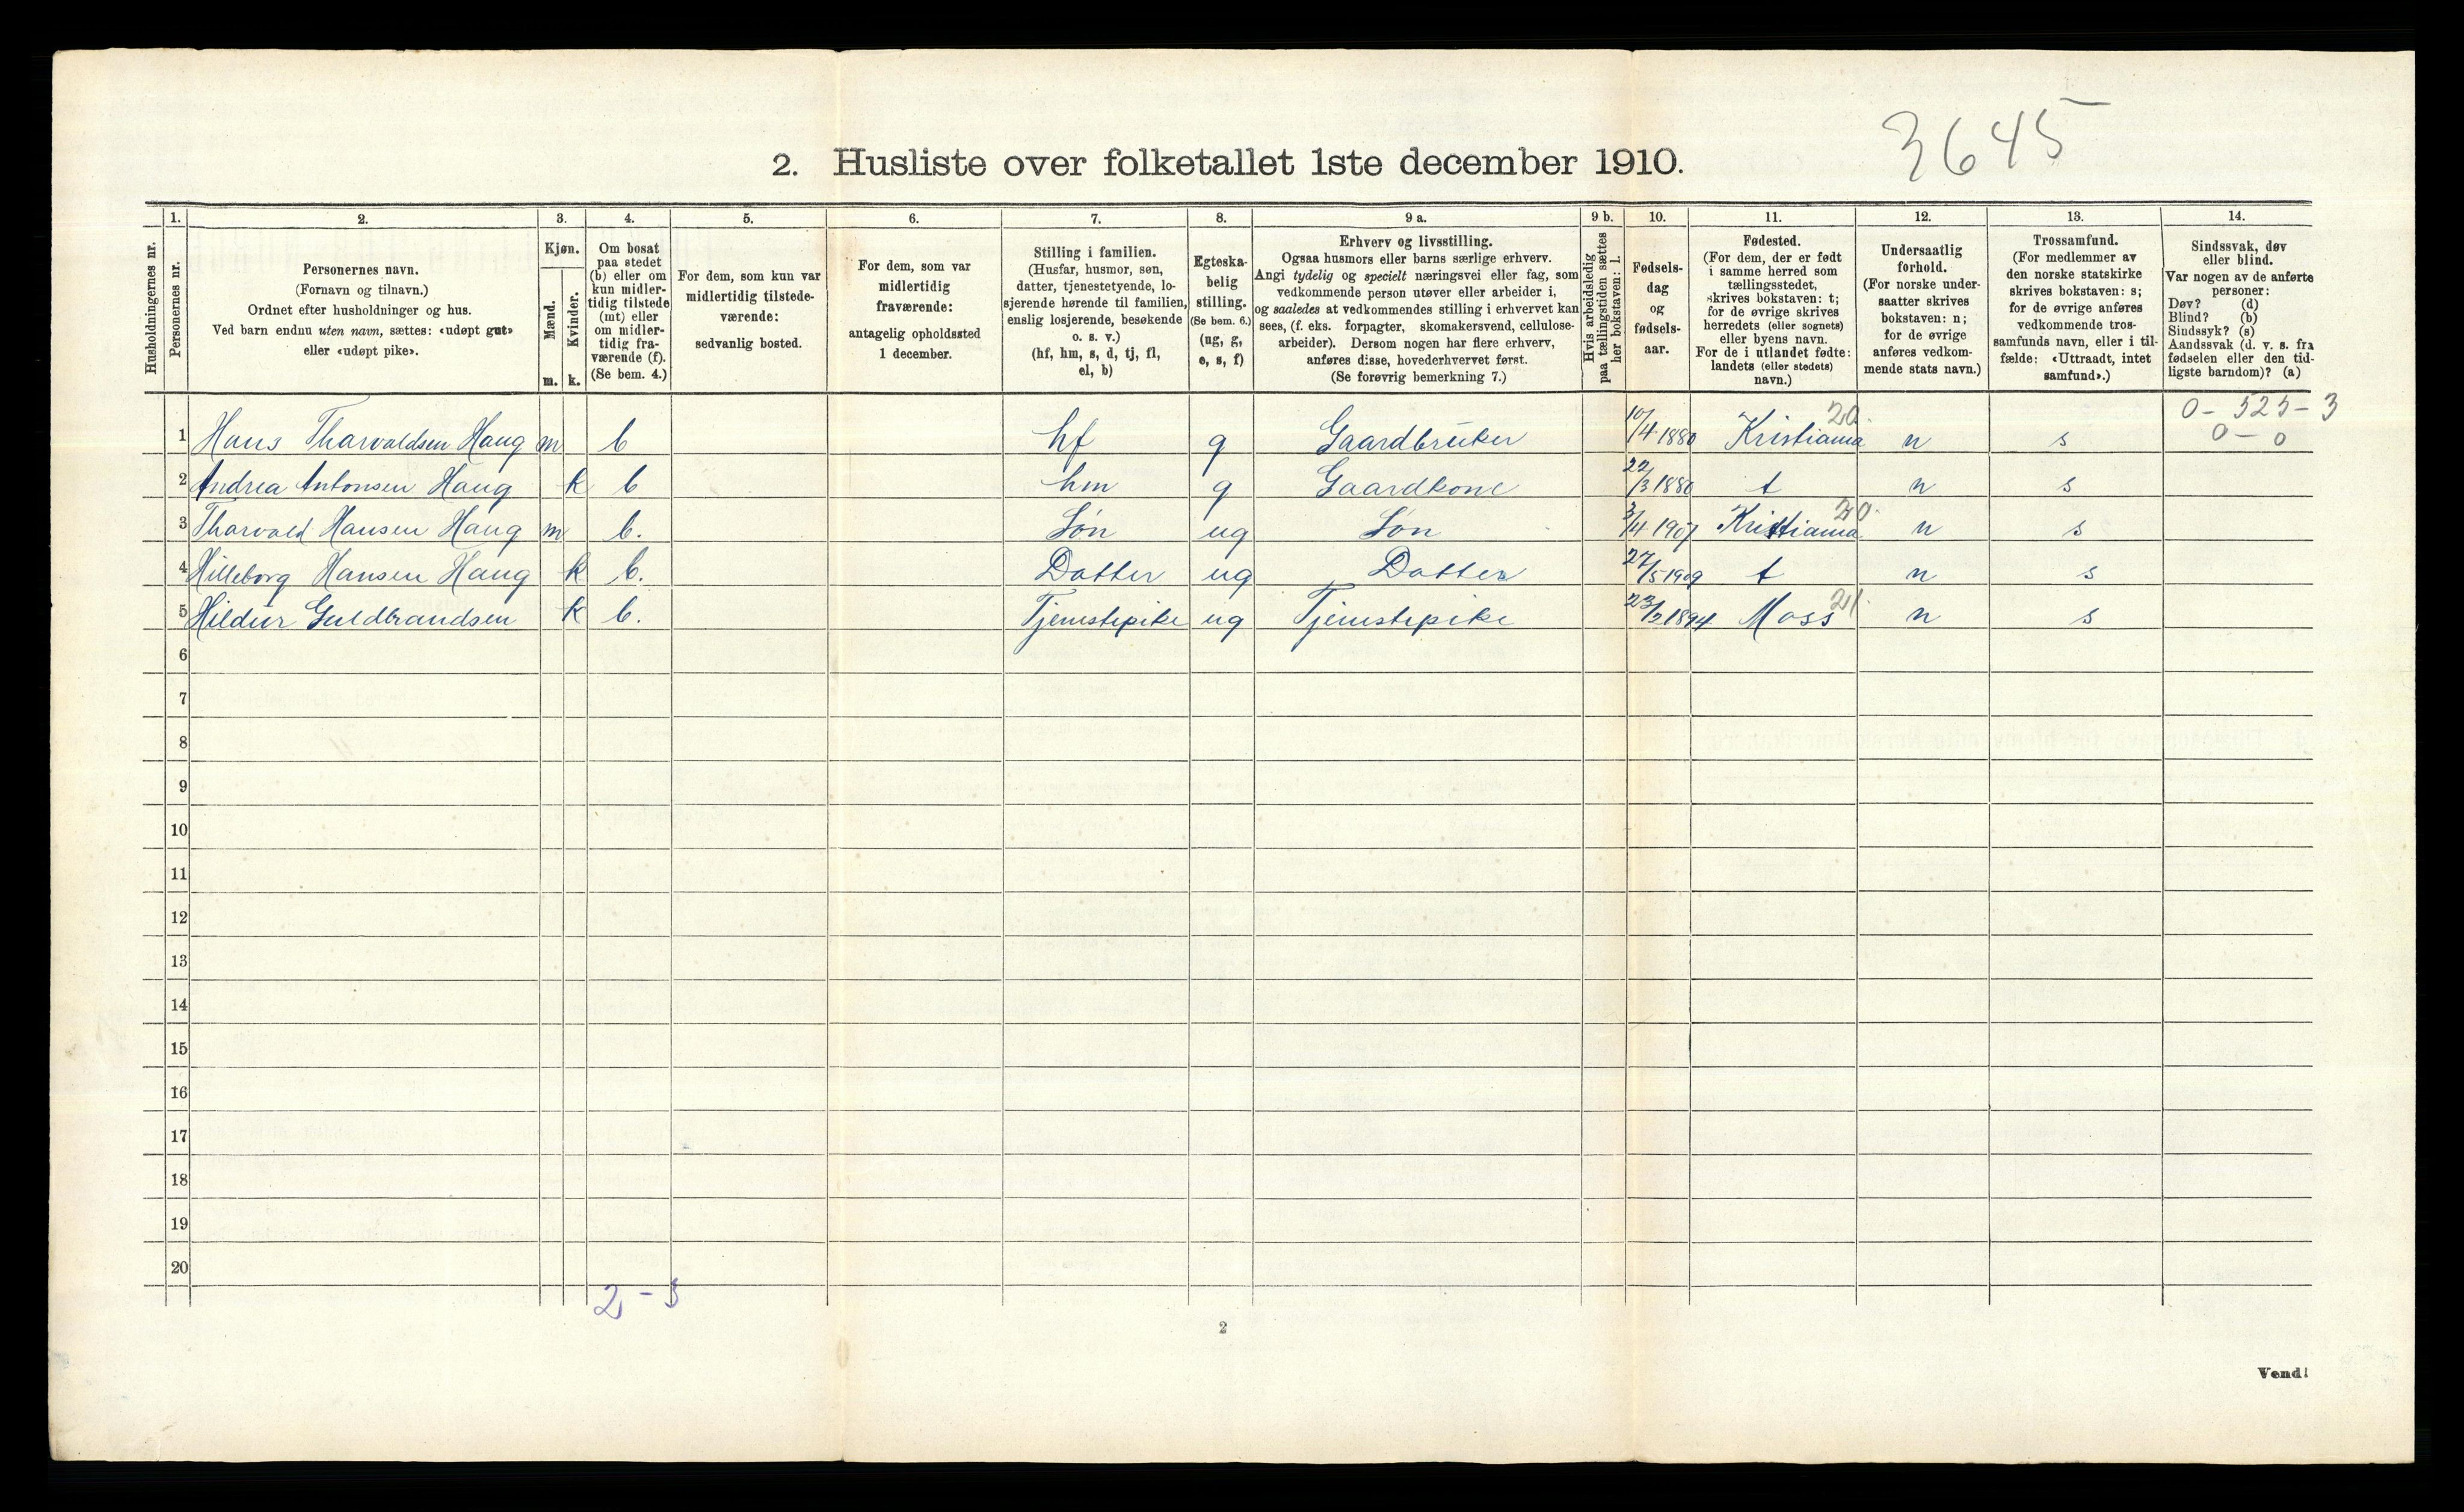 3645
2. Husliste over folketallet 1ste december 1910.
1. 2. 3. 4. 5. 6. 7. 8. 9 a. 9 b. 10. 11. 12. 13. 14.
Husholdningernes nr.
Personernes nr.
Personernes navn.
(Fornavn og tilnavn.)
Ordnet efter husholdninger og hus.
Ved barn endnu uten navn, sættes: «udøpt gut»
eller «udøpt pike».
Kjøn.
Mænd.
Kvinder.
m. k.
Om bosat
paa stedet
(b) eller om
kun midler-
tidig tilstede
(mt) eller
om midler-
tidig fra-
værende (f).
(Se bem. 4.)
For dem, som kun var
midlertidig tilstede-
værende:
sedvanlig bosted.
For dem, som var
midlertidig
fraværende:
antagelig opholdssted
1 december.
Stilling i familien.
(Husfar, husmor, søn,
datter, tjenestetyende, lo-
sjerende hørende til familien,
enslig losjerende, besøkende
o. s. v.)
(hf, hm, s, d, tj, fl,
el, b)
Egteska-
belig
stilling.
(Se bem. 6.)
(ug, g,
e, s, f)
Erhverv og livsstilling.
Ogsaa husmors eller barns særlige erhverv.
Angi tydelig og specielt næringsvei eller fag, som
vedkommende person utøver eller arbeider i,
og saaledes at vedkommendes stilling i erhvervet kan
sees, (f. eks. forpagter, skomakersvend, cellulose-
arbeider). Dersom nogen har flere erhverv,
anføres disse, hovederhvervet først.
(Se forøvrig bemerkning 7.)
Hvis arbeidsledig
paa tællingstiden sættes
her bokstaven: l.
Fødsels-
dag
og
fødsels-
aar.
Fødested.
(For dem, der er født
i samme herred som
tællingsstedet,
skrives bokstaven: t;
for de øvrige skrives
herredets (eller sognets)
eller byens navn.
For de i utlandet fødte:
landets (eller stedets)
navn.)
Undersaatlig
forhold.
(For norske under-
saatter skrives
bokstaven: n;
for de øvrige
anføres vedkom-
mende stats navn.)
Trossamfund.
(For medlemmer av
den norske statskirke
skrives bokstaven: s;
for de øvrige anføres
vedkommende tros-
samfunds navn, eller i til-
fælde: «Uttraadt, intet
samfund».)
Sindssvak, døv
eller blind.
Var nogen av de anførte
personer:
Døv? (d)
Blind? (b)
Sindssyk? (s)
Aandssvak (d. v. s. fra
fødselen eller den tid-
ligste barndom)? (a)
20. 0 - 525 - 3
1 Hans Tharvaldsen Haug m b hf g Gaardbruker 10/4 1880 Kristiania n s 0 - 0
2 Andrea Antonsen Haug k b hm g Gaardkone 22/3 1880 t n s
20.
3 Tharvald Hansen Haug m b. Søn ug Søn 3/4 1907 Kristiania n s
4 Hilleborg Hansen Haug k b. Datter ug Datter 27/5 1909 t n s
21.
5 Hildur Guldbrandsen k b. Tjenstepike ug Tjenstepike 23/2 1894 Moss n s
6
7
8
9
10
11
12
13
14
15
16
17
18
19
20
2 - 3
2
Vend!